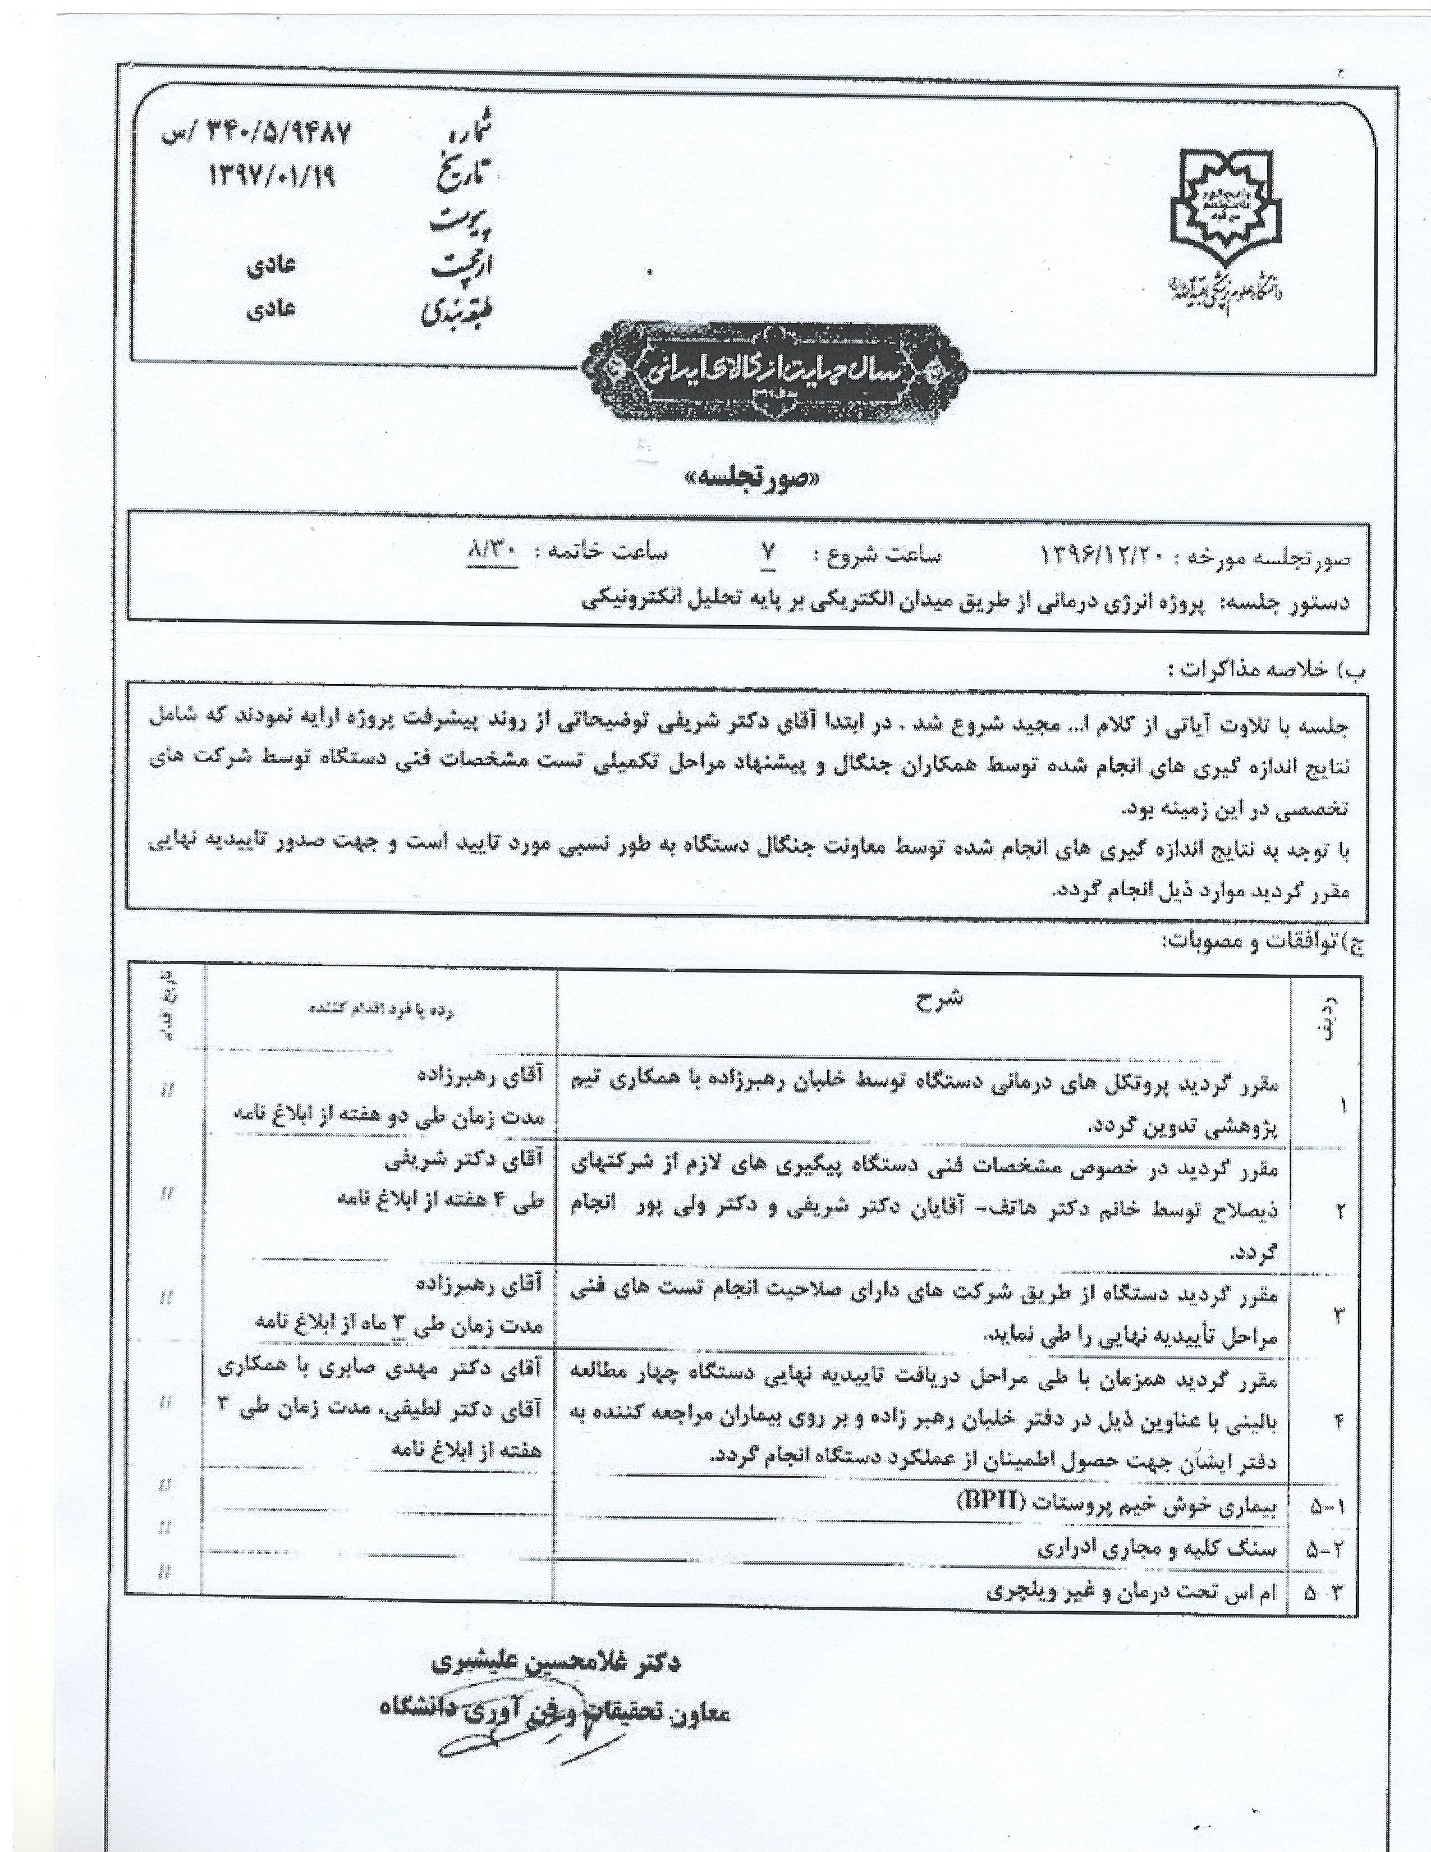 شماره ۳۴۰/۵/۹۴۸۷ /س
تاریخ ۱۳۹۷/۰۱/۱۹
پیوست
ارجحیت عادی
طبقه بندی عادی
دانشگاه علوم پزشکی بقیة الله
سال حمایت از کالای ایرانی
«صورتجلسه»
صورتجلسه مورخه : ۱۳۹۶/۱۲/۲۰ ساعت شروع : ۷ ساعت خاتمه : ۸/۳۰
دستور جلسه: پروژه انرژی درمانی از طریق میدان الکتریکی بر پایه تحلیل الکترونیکی
ب) خلاصه مذاکرات :
جلسه با تلاوت آیاتی از کلام ا... مجید شروع شد . در ابتدا آقای دکتر شریفی توضیحاتی از روند پیشرفت پروژه ارایه نمودند که شامل
نتایج اندازه گیری های انجام شده توسط همکاران جنگال و پیشنهاد مراحل تکمیلی تست مشخصات فنی دستگاه توسط شرکت های
تخصصی در این زمینه بود.
با توجه به نتایج اندازه گیری های انجام شده توسط معاونت جنگال دستگاه به طور نسبی مورد تایید است و جهت صدور تاییدیه نهایی
مقرر گردید موارد ذیل انجام گردد.
ج)توافقات و مصوبات:
ردیف شرح رده یا فرد اقدام کننده تاریخ اقدام
مقرر گردید پروتکل های درمانی دستگاه توسط خلبان رهبرزاده با همکاری تیم آقای رهبرزاده
۱ پژوهشی تدوین گردد. مدت زمان طی دو هفته از ابلاغ نامه //
مقرر گردید در خصوص مشخصات فنی دستگاه پیگیری های لازم از شرکتهای آقای دکتر شریفی
۲ ذیصلاح توسط خانم دکتر هاتف- آقایان دکتر شریفی و دکتر ولی پور انجام طی ۴ هفته از ابلاغ نامه //
گردد.
مقرر گردید دستگاه از طریق شرکت های دارای صلاحیت انجام تست های فنی آقای رهبرزاده
۳ مراحل تأییدیه نهایی را طی نماید. مدت زمان طی ۳ ماه از ابلاغ نامه //
مقرر گردید همزمان با طی مراحل دریافت تاییدیه نهایی دستگاه چهار مطالعه آقای دکتر مهدی صابری با همکاری
۴ بالینی با عناوین ذیل در دفتر خلبان رهبر زاده و بر روی بیماران مراجعه کننده به آقای دکتر لطیفی. مدت زمان طی ۳ //
دفتر ایشان جهت حصول اطمینان از عملکرد دستگاه انجام گردد. هفته از ابلاغ نامه
۵-۱ بیماری خوش خیم پروستات (BPH) //
۵-۲ سنگ کلیه و مجاری ادراری //
۵-۳ ام اس تحت درمان و غیر ویلچری //
دکتر غلامحسین علیشیری
معاون تحقیقات و فن آوری دانشگاه